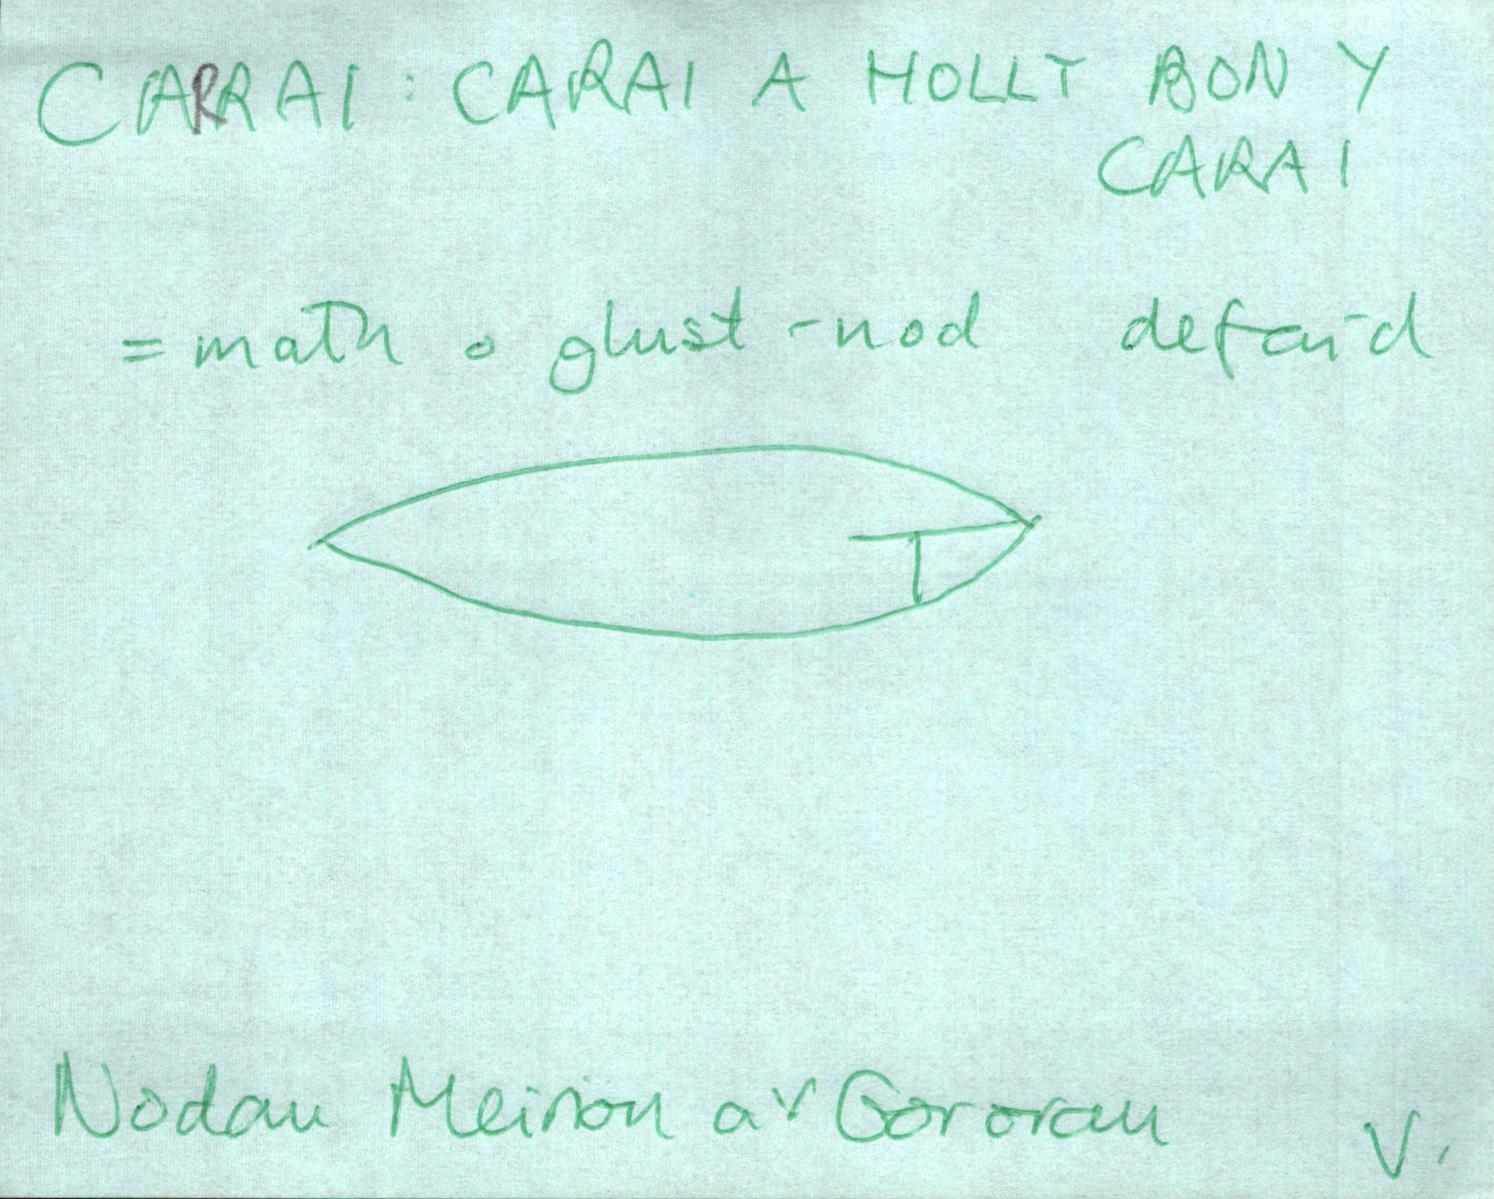 CARRAI : CARAI A HOLLT BON Y
CARAI
= math o glust-nod defaid
Nodau Meirion a'r Gororau
V.